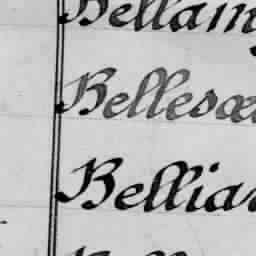 Bellam
Bellesœ
Bellian